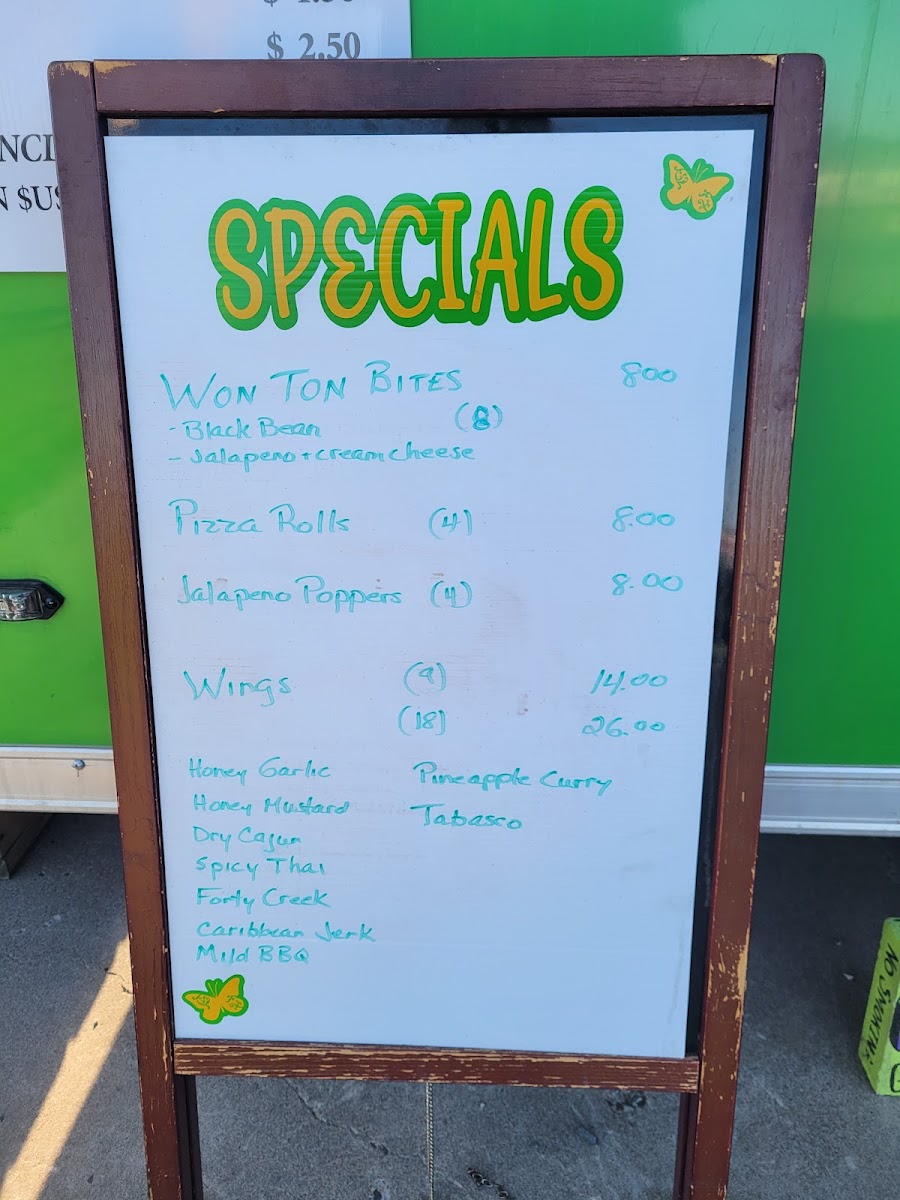 $ 2.50
NCI
N $US
SPECIALS
WON TON BITES (8) 800
- Black Bean
- Jalapeno + cream cheese
Pizza Rolls (4) 8.00
Jalapeno Poppers (4) 8.00
Wings (9) 14.00
(18) 26.00
Honey Garlic
Honey Mustard
Dry Cajun
Spicy Thai
Forty Creek
Caribbean Jerk
Mild BBQ
Pineapple Curry
Tabasco
NO SMOKING